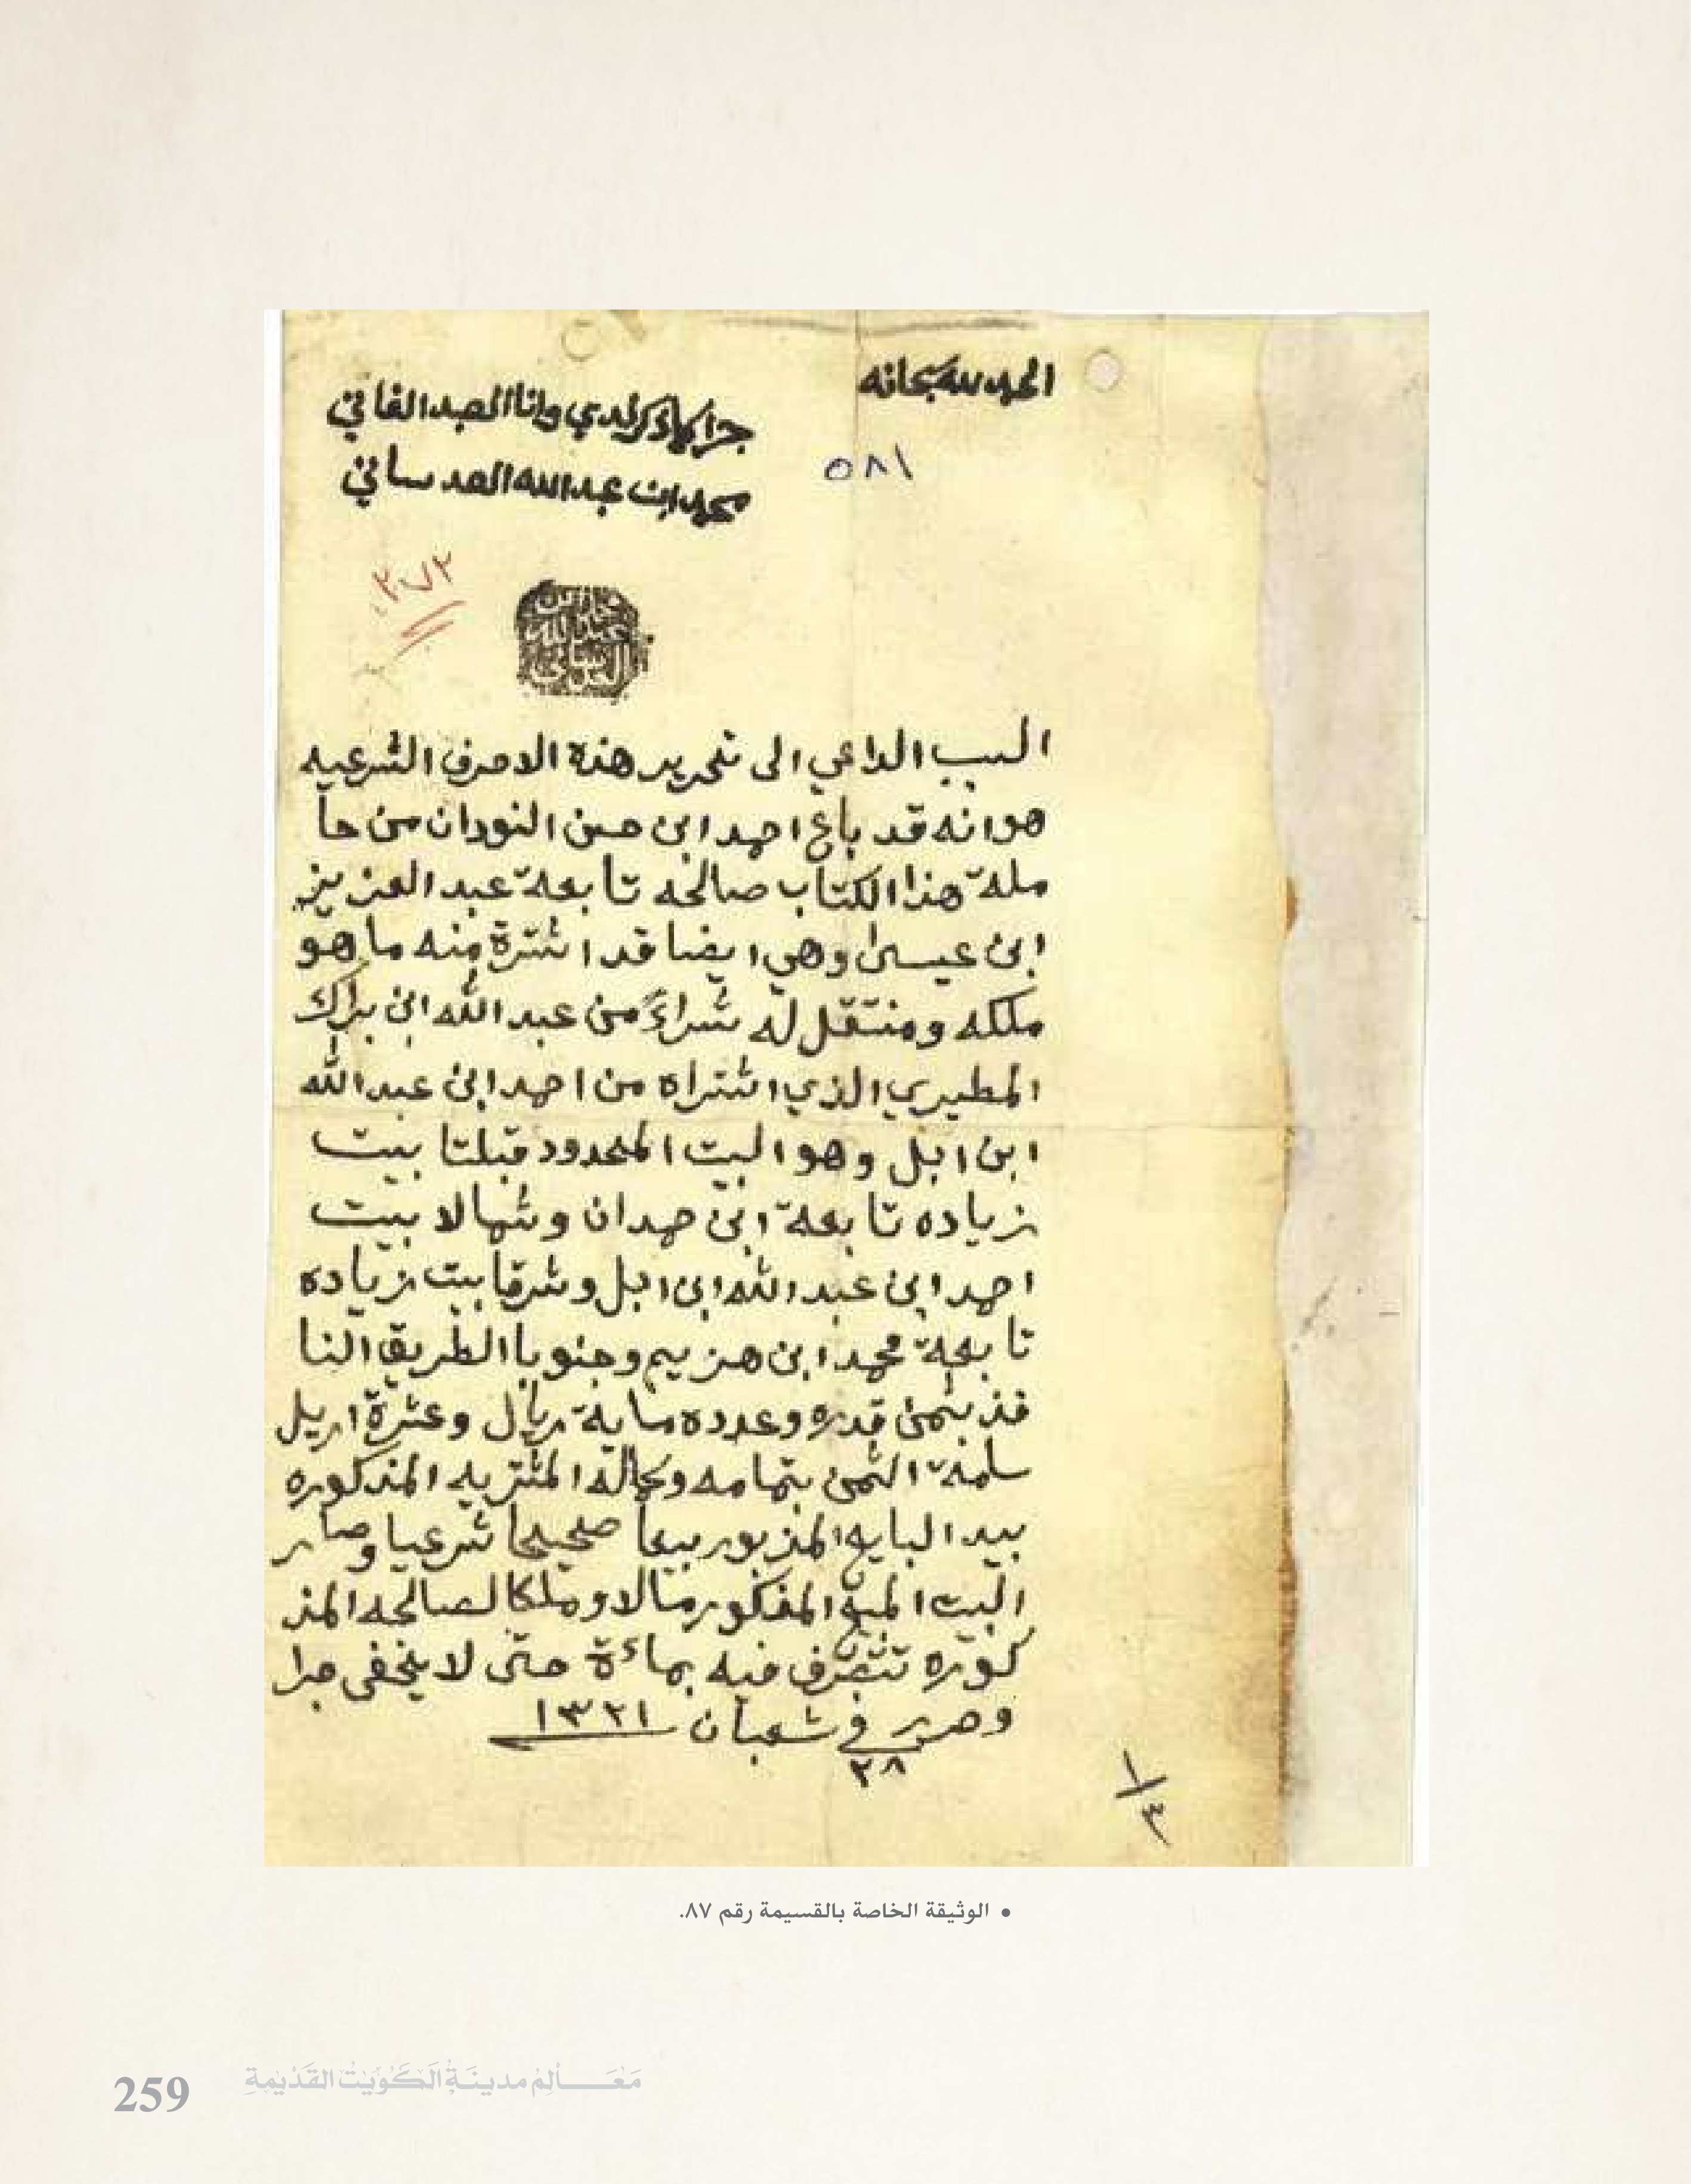 الحمد لله سبحانه
جرا كما ذكر لدي وانا العبد الفاني
محمد ابن عبدالله العدساني
٥٨١
٢٧٢
محمد بن
عبد الله
العدساني
السبب الداعي الى تحرير هذه الاحرف الشرعيه
هو انه قد باع احمد ابن حسن النودان من حا
ملة هذا الكتاب صالحه تابعة عبد العزيز
ابن عيسى وهي ايضا قد اشترة منه ما هو
ملكه ومنتقل له شراءً من عبد الله ابن براك
المطيري الذي اشتراه من احمد ابن عبد الله
ابن ابل وهو البيت المحدود قبلتا بيت
زياده تابعة ابن حمدان وشمالا بيت
احمد ابن عبد الله ابن ابل وشرقا بيت زياده
تابعة محمد ابن هزيم وجنوبا الطريق النا
فذ بثمن قدره وعدده ماية ريال وعشرة اريل
سلمة الثمن بتمامه وكماله المشتريه المذكوره
بيد البايع المزبور بيعا صحيحا شرعيا وصار
البيت المبيع المذكور مالا وملكا لصالحه المذ
كوره تتصرف فيه بماءة حتى لا يخفى جرا
وحرر في ٢٨ شعبان ١٣٢١
١/٣
• الوثيقة الخاصة بالقسيمة رقم ٨٧.
259 مَعَالِم مدينَة الكُوَيْت القَدْيمة